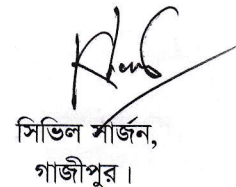 সিভিল সার্জন,
গাজীপুর।